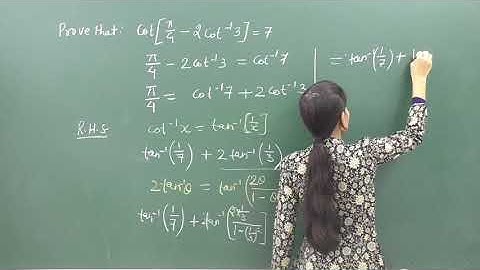 Prove that: Cot[π/4 - 2cot⁻¹3] = 7
π/4 - 2cot⁻¹3 = cot⁻¹7
π/4 = cot⁻¹7 + 2cot⁻¹3
R.H.S
cot⁻¹x = tan⁻¹[1/x]
tan⁻¹(1/7) + 2tan⁻¹(1/3)
2tan⁻¹θ = tan⁻¹(2θ/1 -
tan⁻¹(1/7) + tan⁻¹[2×1/3 / 1-(1/3)²]
= tan⁻¹(1/7) +